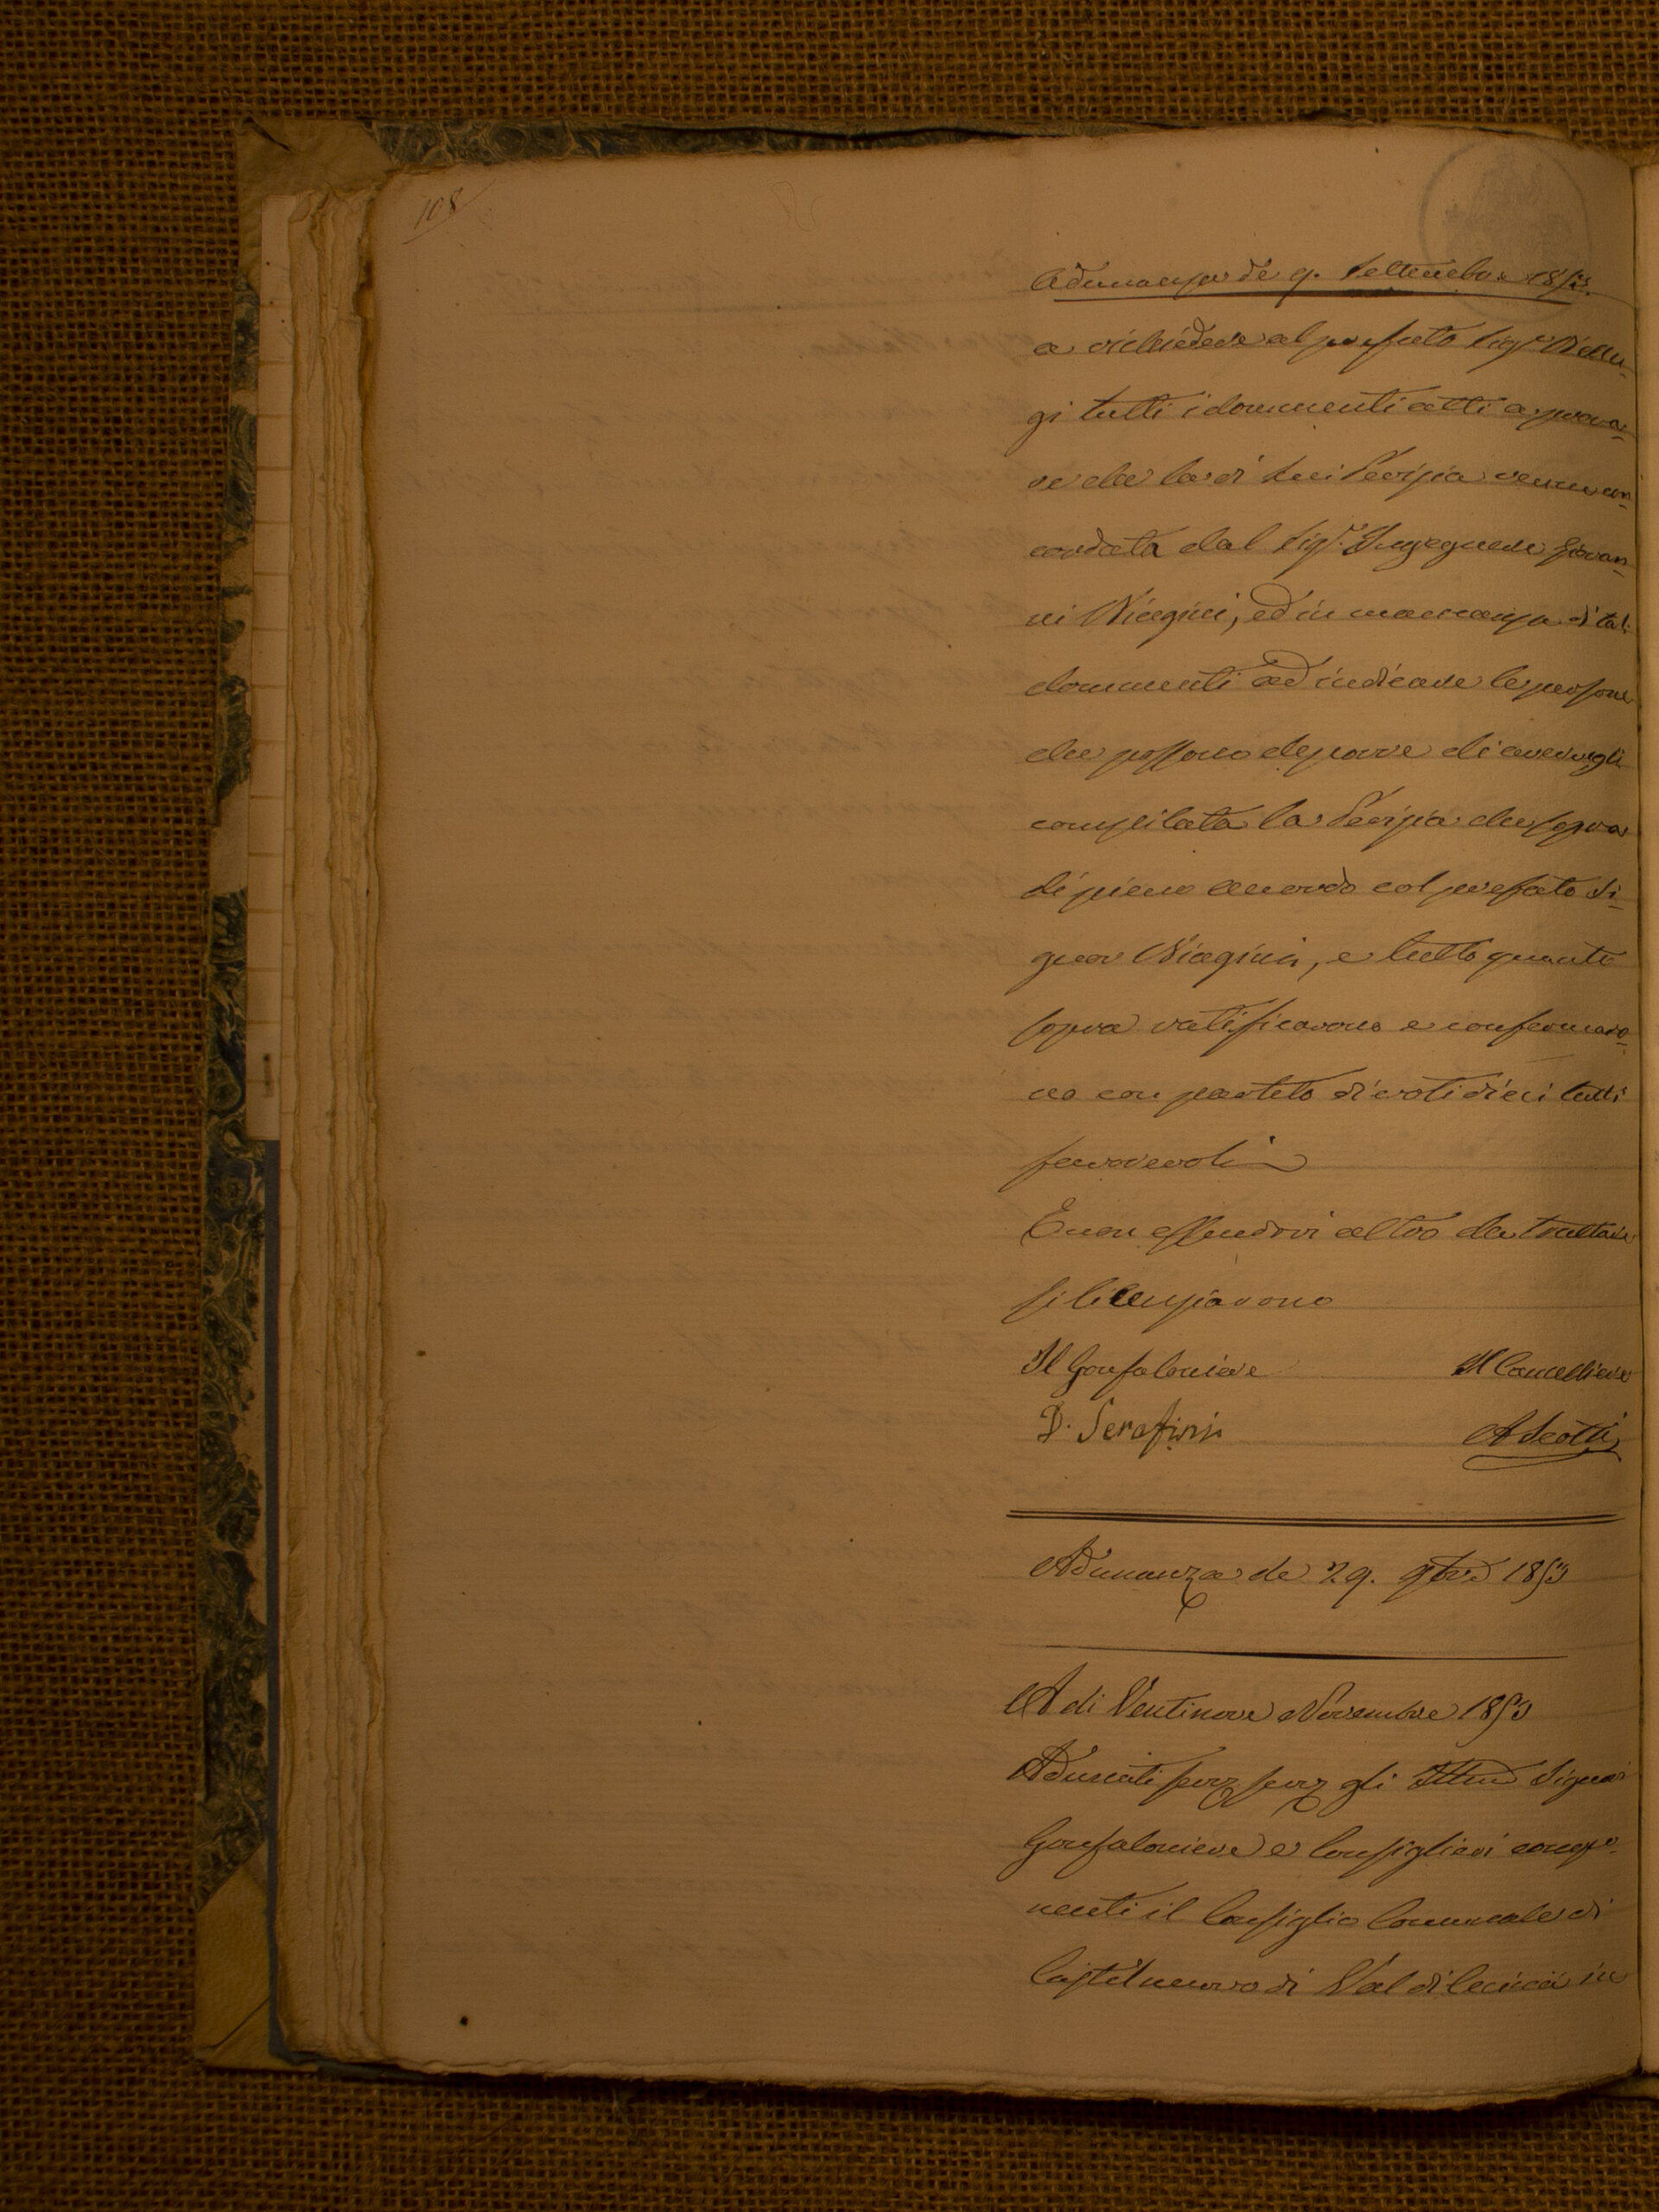 108
Adunanza de 9. Settembre 1853.
a richiedere al prefato Sigr. Bellu-
gi tutti i documenti atti a prova-
re che la di lui Perizia venne con-
cordata dal Sigr. Ingegnere Giovan-
ni Biagini, ed in mancanza di tali
documenti ad indicare le persone
che possono deporre di avere egli
compilata la Perizia che sopra
di pieno accordo col prefato Si-
gnor Biagini, e tutto quanto
sopra ratificarono e confermaro-
no con partito di voti dieci tutti
favorevoli
E non essendovi altro da trattare
si licenziarono
Il Gonfaloniere Il Cancelliere
D. Serafini A Scotti
Adunanza de 29. 9bre 1853
A di Ventinove Novembre 1853
Adunati serv. serv. gli Illmi Signori
Gonfaloniere e Consiglieri compo-
nenti il Consiglio Comunale di
Castelnuovo di Val di Cecina in